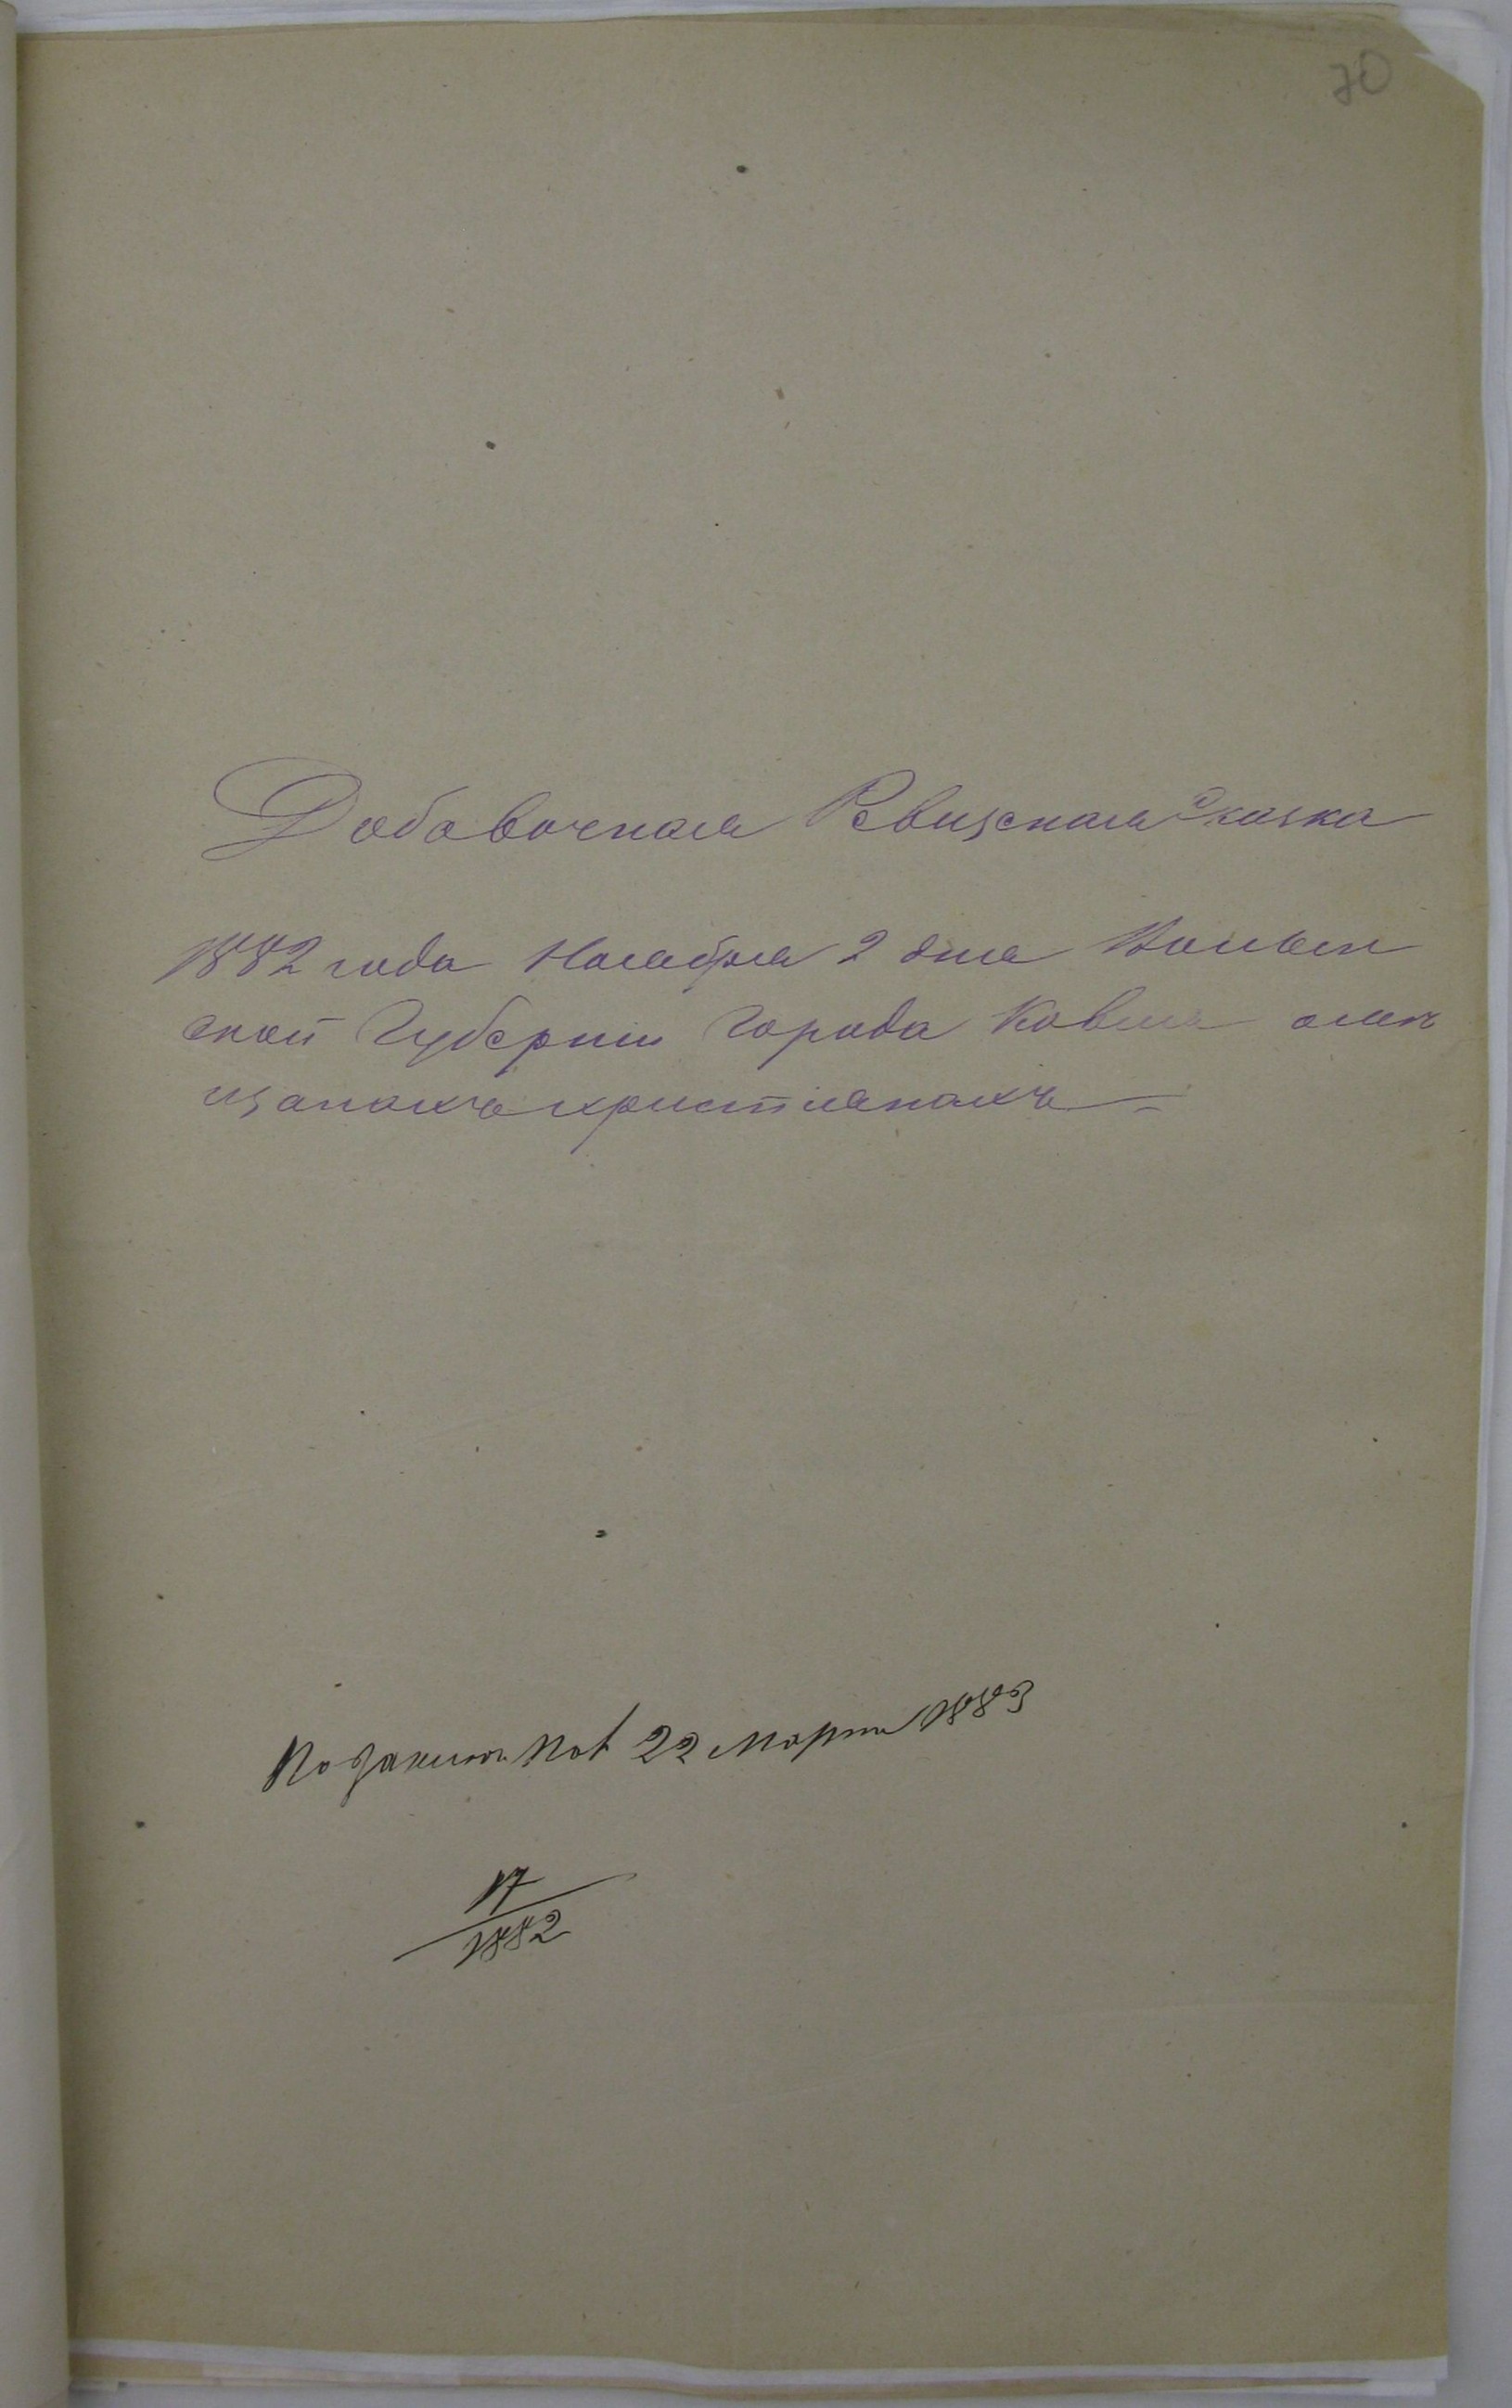 70
Добавочная Ревизская Сказка
1882 года Ноября 2 дня Волын
ской Губернии Города Ковля о мѣ
щанахъ христіанахъ
22 Марта 1883
17
1882